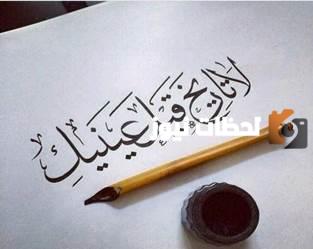 لا تاريخ قبل عينيك
لحظات نيوز